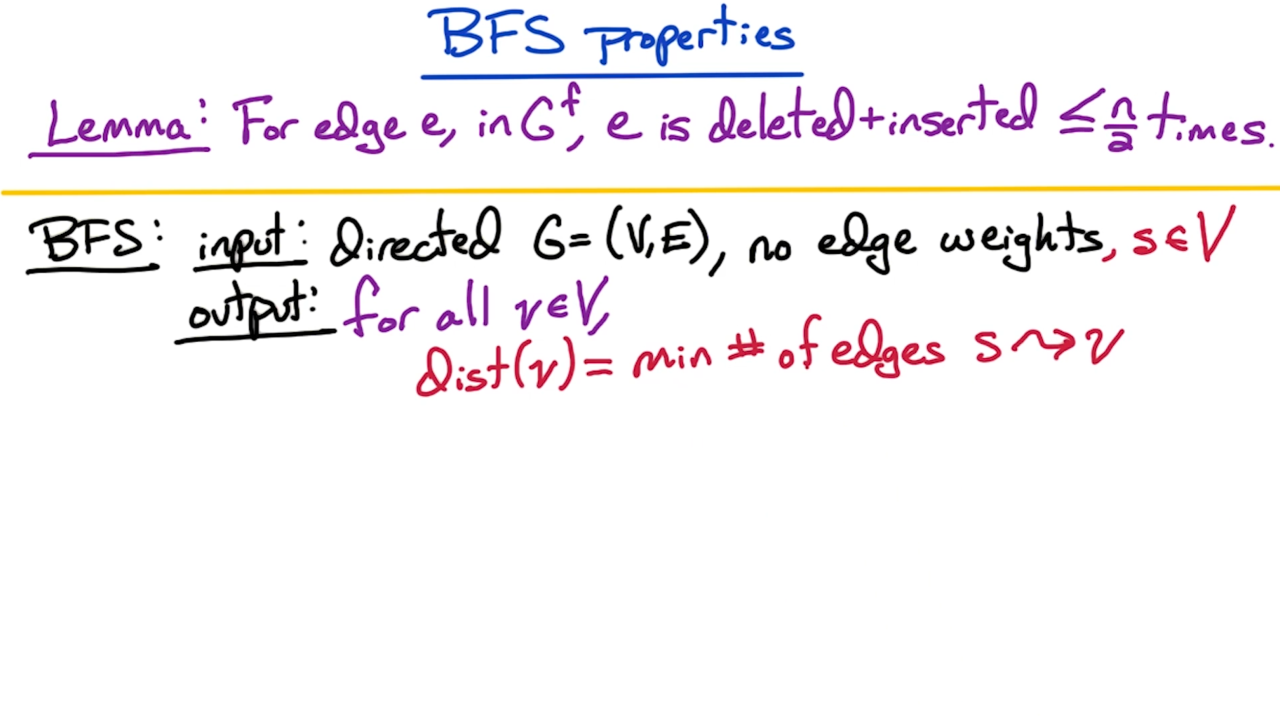 BFS properties
Lemma: For edge e, in G^f, e is deleted+inserted ≤ n/2 times.
BFS: input: directed G=(V,E), no edge weights, s∈V
output: for all v∈V,
dist(v)= min # of edges s⇝v